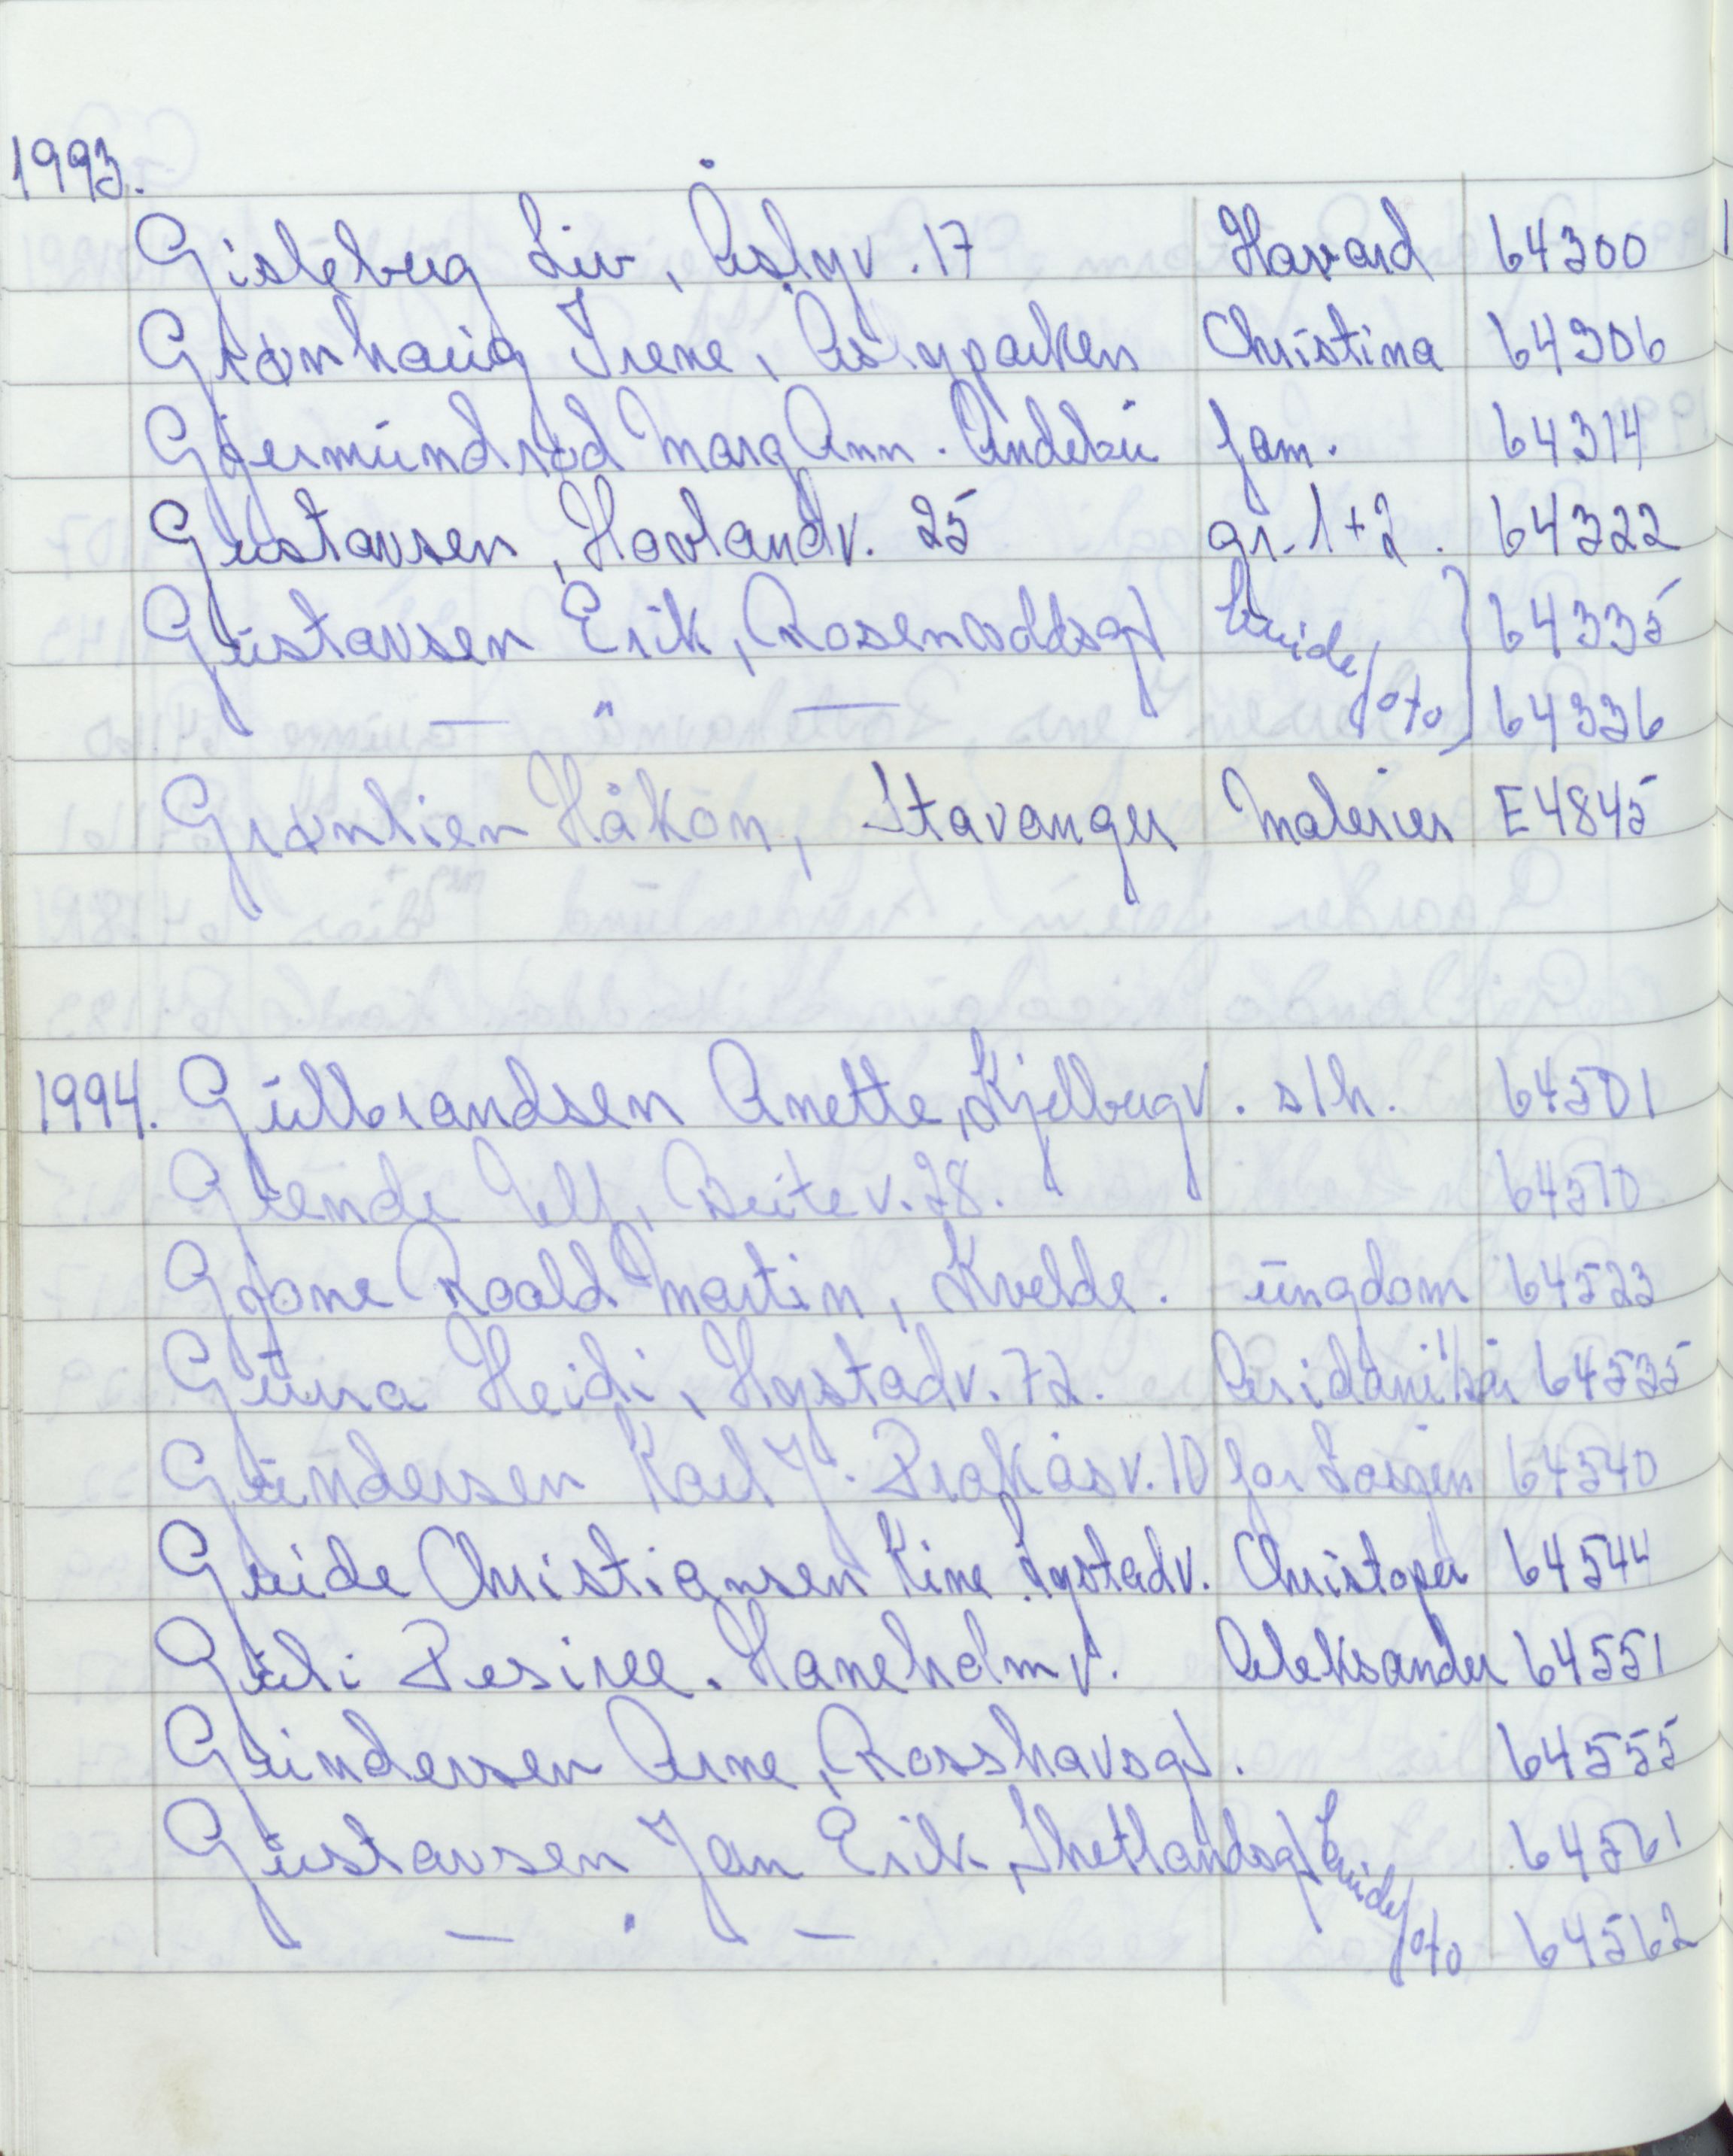 1993.
Gisleberg Liv, Åslyv. 17 Havard 64300
Grønhaug Irene, Åslyparken Christina 64306
Gjermundrød Marg Ann. Andebu fam. 64314
Gustavsen, Hovlandv. 25 gr. 1+2. 64322
Gustavsen Erik, Rosenvoldsgt brude/foto 64335
— " — 64336
Grønlien Håkon, Stavanger Malerier E4845
1994. Gulbrandsen Anette, Kjellbergv. slh. 64501
Grende Ulf, 28. 64510
Gjone Roald Martin, Kvelde. ungdom 64523
Guna Heidi, Hystadv. 72. 64535
Gundersen Karl J. Prakåsv. 10 64540
Guide Christiansen Kine Hystadv. Christoper 64544
Guli Desiree. Haneholmv. Aleksander 64551
Gundersen Arne, Rosshavsgt. 64555
Gustavsen Jan Erik, Shetlandsgt brude/foto 64561
— " — 64562